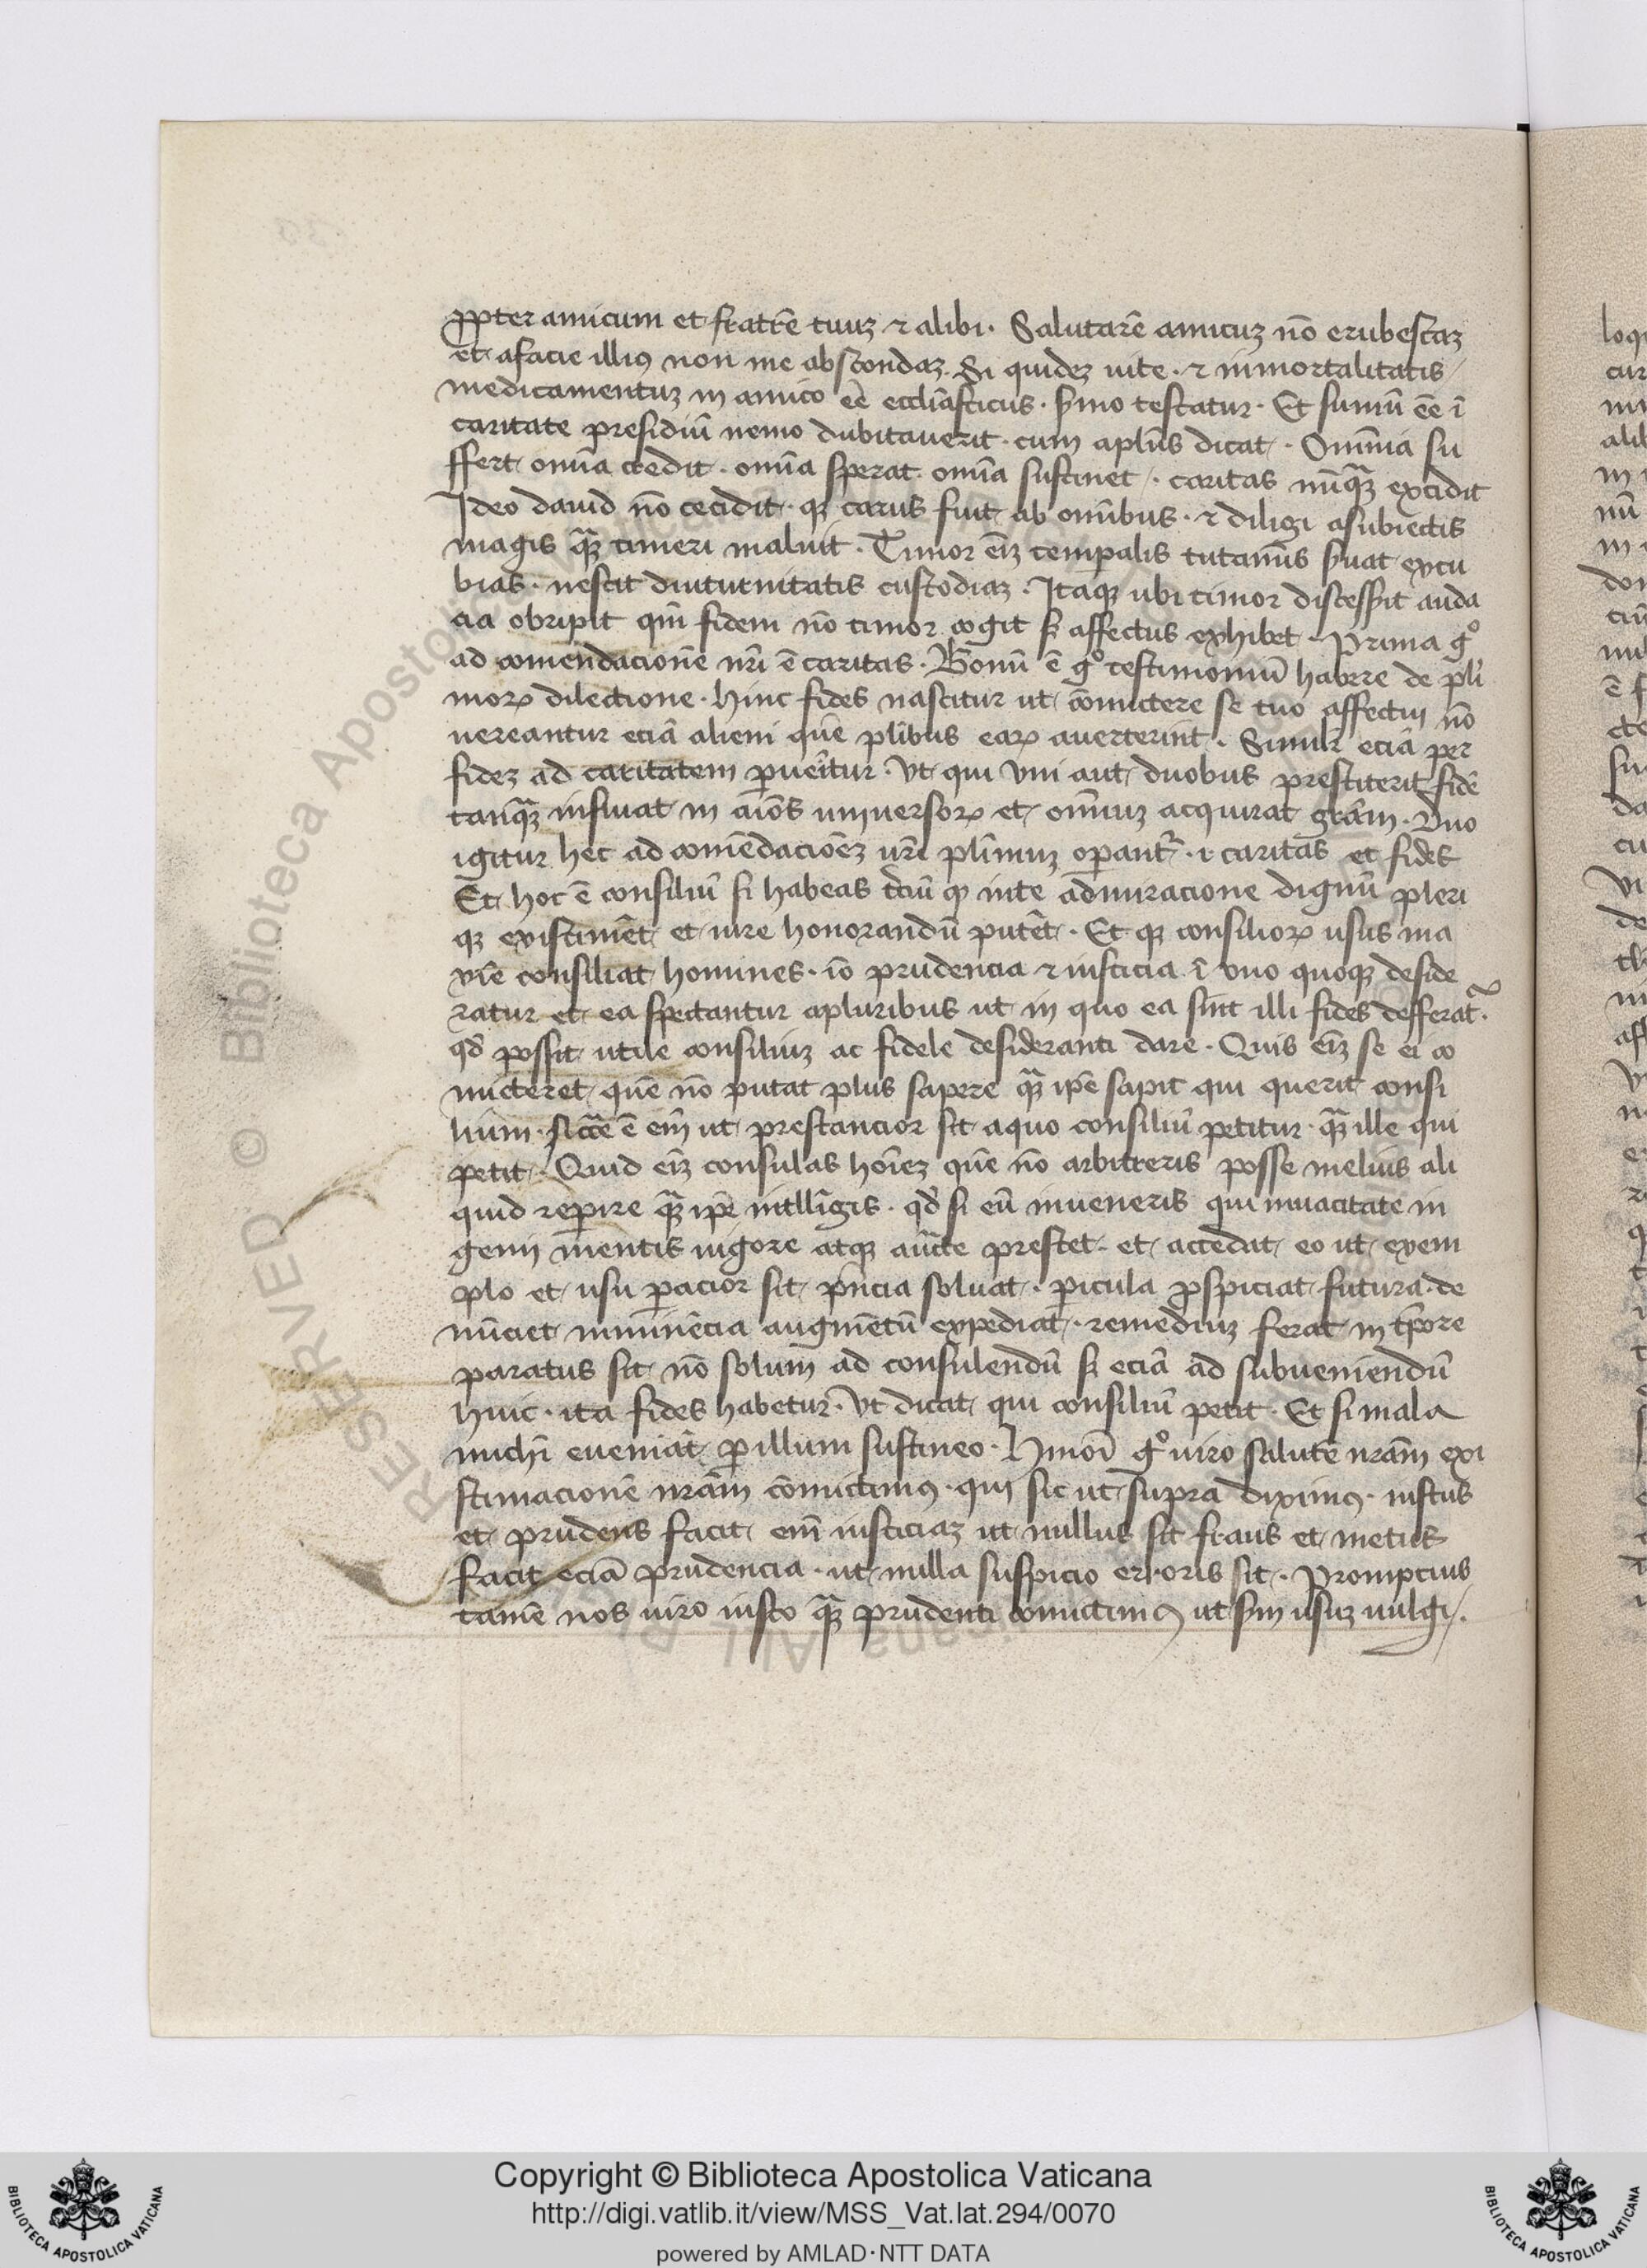 ꝓpter amicum et fratrē tuuꝫ ⁊ alibi · Salutarē amicuꝫ nō erubescaꝫ
et afacie illiꝯ non me abscondaꝫ . Si quideꝫ uite · ⁊ inmortalitatis
medicamentuꝫ in amico eē eccliāsticus · ẜmo testatur · Et sumū eē ī
caritate presidiū nemo dubitauerit · cum aplūs dicat · Om̄nia su
ffert om̄ia credit · om̄ia sperat om̄ia sustinet · caritas nūqᷓꝫ excidit
Ideo dauid nō cecidit · qꝫ carus fuit ab om̄ibus · ⁊ diligi asubiectis
magis qᷓꝫ timeri maluit · Timor eīꝫ temꝑalis ẜuat excu
bias · nescit diuturnitatis custodiaꝫ · Itaqꝫ ubi timor discesserit auda
cia obripit qm̄ fidem nō timor cogit ẜ affectus exhibet · Prima gͦ
ad comendacionē nrī ē caritas · Bonū ē gͦ testimoniū habere de pli
moꝝ dilectione · Hinc fides nascitur ut cōmictere se tuo affectui nō
uereantur eciā alieni quē plībus eaꝝ auerterint · Simulr̄ eciā per
fideꝫ ad caritatem ꝑueītur · Vt qui vni aut duobus prestiterit fidē
tanqᷓꝫ influat in aīos uniuersoꝝ et om̄iuꝫ acquirat grām · Duo
igitur hec ad comēdacionēꝫ nrī plīmuꝫ oꝑant᷑ · ⁊ caritas et fides
Et hoc ē consiliū si habeas tciū ꝙ inte admiracione dignū pleri
qꝫ existimēt et iure honorandū putēt · Et qꝫ consilioꝝ usus ma
xīe consiliat homines · iō prudencia ⁊ iusticia ī uno quoqꝫ deside
ratur et ea spectantur apluribus ut in quo ea sint illi fides defferat᷑ ·
qd̄ possit utile consiliuꝫ ac fidele desideranti dare · Quis eīꝫ se ei co
micteret quē nō putat plus sapere qᷓꝫ ipē sapit qui querit consi
lium · ē em̄ ut prestancior sit aquo consiliū petitur · qᷓꝫ ille qui
petit · Quid eīꝫ consulas hoīeꝫ quē nō arbitreris posse melius ali
quid reꝑire qᷓꝫ ipē intlligis · qd̄ si eū inueneris qui inuacitate in
genii mentis uigore atqꝫ prestet et accedat eo ut exem
plo et usu ꝑacior sit pn̄cia soluat · ꝑicula ꝓspiciat futura · de
nūciet inminēcia augmētū expediat · remediuꝫ ferat in tp̄ore
paratus sit nō solum ad consulendū ẜ eciā ad subueniendū
huic · ita fides habetur · Vt dicat qui consiliū petit · Et si mala
michi eueniāt ꝑ illum sustineo · Hmōi gͦ uiro salutē nrām exi
stimacionē nrām cōmictimꝯ · qui sic ut supra diximꝯ · iustus
et prudens facit em̄ iusticiaꝫ ut nullus sit fraus et metus
facit eciā prudencia · ut nulla suspicio erroris sit · Promptius
tamē nos uiro iusto qᷓꝫ prudenti comictimꝯ ut ẜm usuꝫ uulgi ·
loqu
cur
Copyright © Biblioteca Apostolica Vaticana
http://digi.vatlib.it/view/MSS_Vat.lat.294/0070
powered by AMLAD·NTT DATA